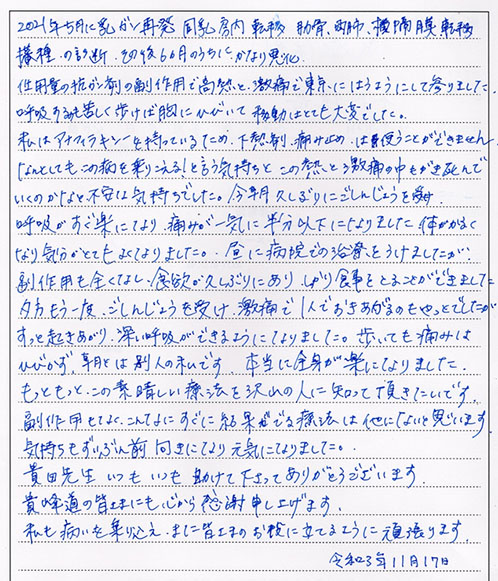 2021年5月に乳ガン再発 同乳房内転移 肋骨、両肺、横隔膜転移
播種の診断 その後6ヵ月のうちにかなり悪化
使用量の抗ガン剤の副作用で高熱と、激痛で東京にはうようにして参りました。
呼吸するのも苦しく歩けば胸にひびいて移動はとても大変でした。
私はアナフィラキシーを持っているため、下熱剤、痛み止めは使うことができません
なんとしてもこの病を乗りこえる!と言う気持ちと、この熱と激痛の中もがき死んで
いくのかなと、不安な気持ちでした。今朝久しぶりにごしんじょうを受け
呼吸がすぐ楽になり、痛みが一気に半分以下になりました 体がかるく
なり気分がとてもよくなりました。昼に病院での治療をうけましたが、
副作用も全くなし、食欲が久しぶりにあり しっかり食事をとることができました
夕方もう一度、ごしんじょうを受け、激痛で1人でおきあがるのもやっとでしたが
すっと起きあがり、深い呼吸ができるようになりました。歩いても痛みは
ひびかず、朝とは別人の私です。本当に全身が楽になりました。
もっともっと、この素晴しい療法を沢山の人に知って頂きたいです。
副作用もなく、こんなにすぐに結果がでる療法は他にないと思います
気持ちもずいぶん前向きになり元気になりました。
貴田先生 いつもいつも助けて下さってありがとうございます。
貴峰道の皆さまにも心から感謝申し上げます。
私も病いを乗り込え、また皆さまのお役に立てるように頑張ります。
令和3年11月17日